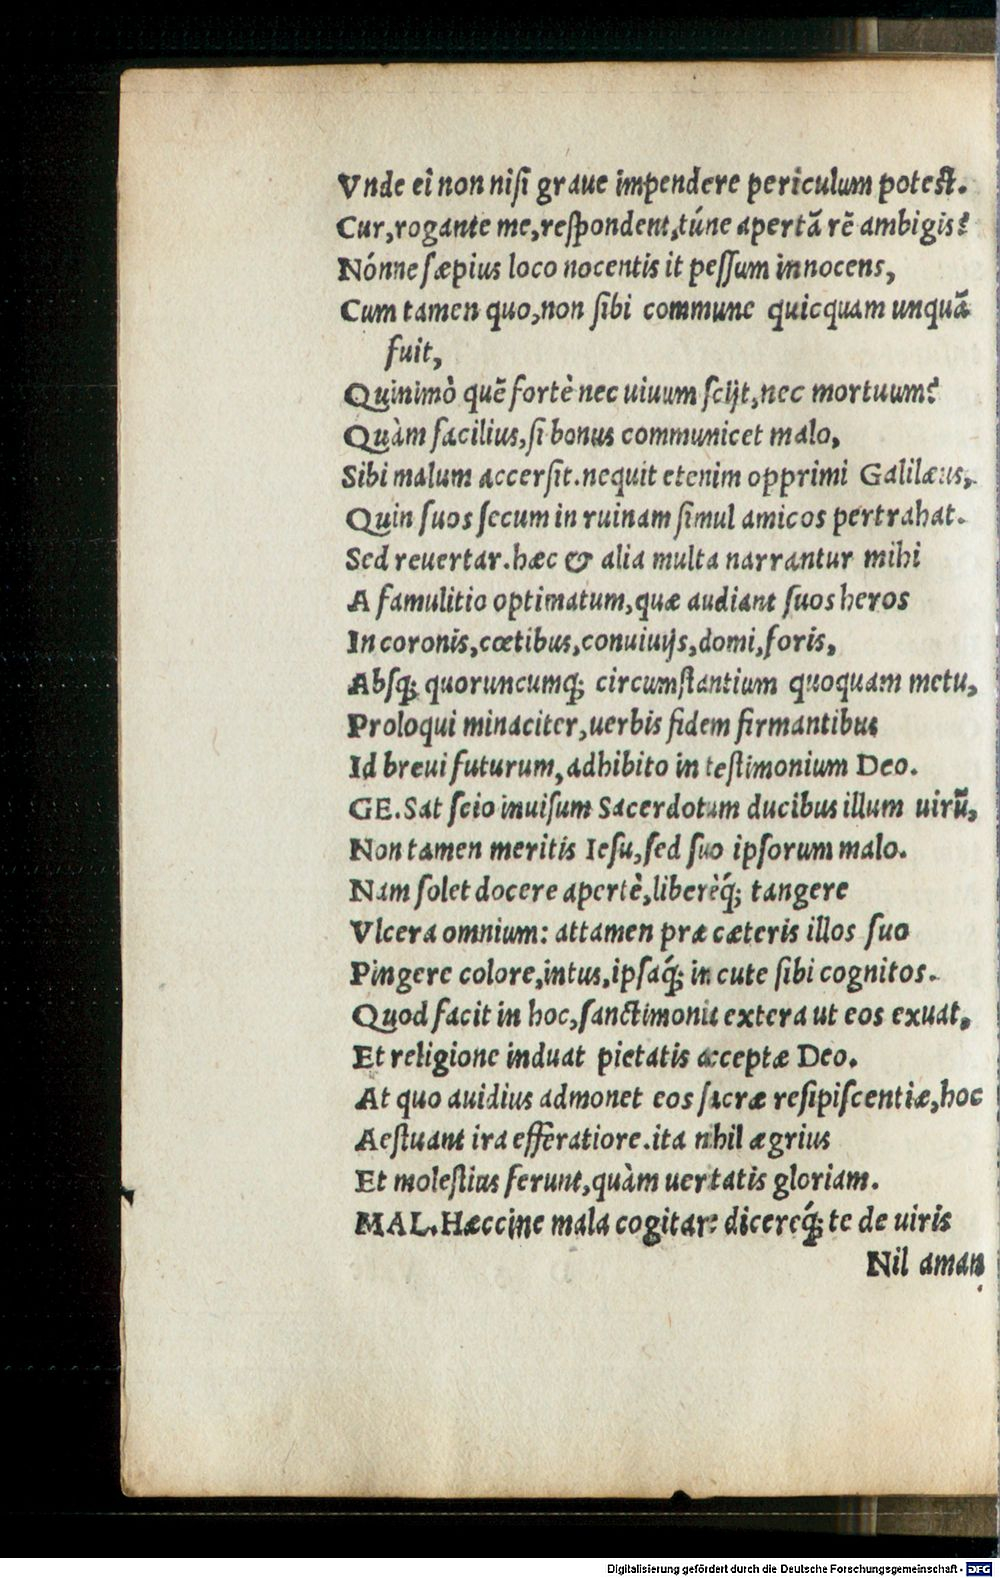 Vnde ei non niſi graue impendere periculum poteſt.
Cur,rogante me,reſpondent,túne apertã rẽ ambigis?
Nónne ſæpius loco nocentis it peſſum innocens,
Cum tamen quo,non ſibi commune quicquam unquã
fuit,
Quinimò quẽ fortè nec uiuum ſcijt,nec mortuum?
Quàm facilius,ſi bonus communicet malo,
Sibi malum accerſit.nequit etenim opprimi Galilæus,
Quin ſuos ſecum in ruinam ſimul amicos pertrahat.
Sed reuertar.hæc & alia multa narrantur mihi
A famulitio optimatum,quæ audiant ſuos heros
In coronis,cœtibus,conuiuijs,domi,foris,
Abſq; quoruncumq; circumſtantium quoquam metu,
Proloqui minaciter,uerbis fidem firmantibus
Id breui futurum,adhibito in teſtimonium Deo.
GE.Sat ſcio inuiſum Sacerdotum ducibus illum uirũ,
Non tamen meritis Ieſu,ſed ſuo ipſorum malo.
Nam ſolet docere apertè,liberèq́; tangere
Vlcera omnium: attamen præ cæteris illos ſuo
Pingere colore,intus,ipſaq́; in cute ſibi cognitos.
Quod facit in hoc,ſanctimonia extera ut eos exuat,
Et religione induat pietatis acceptæ Deo.
At quo auidius admonet eos ſacræ reſipiſcentiæ,hoc
Aeſtuant ira efferatiore.ita nihil ægrius
Et moleſtius ferunt,quàm ueritatis gloriam.
MAL.Hæccine mala cogitare dicereq́; te de uiris
Nil aman
Digitalisierung gefördert durch die Deutsche Forschungsgemeinschaft - DFG